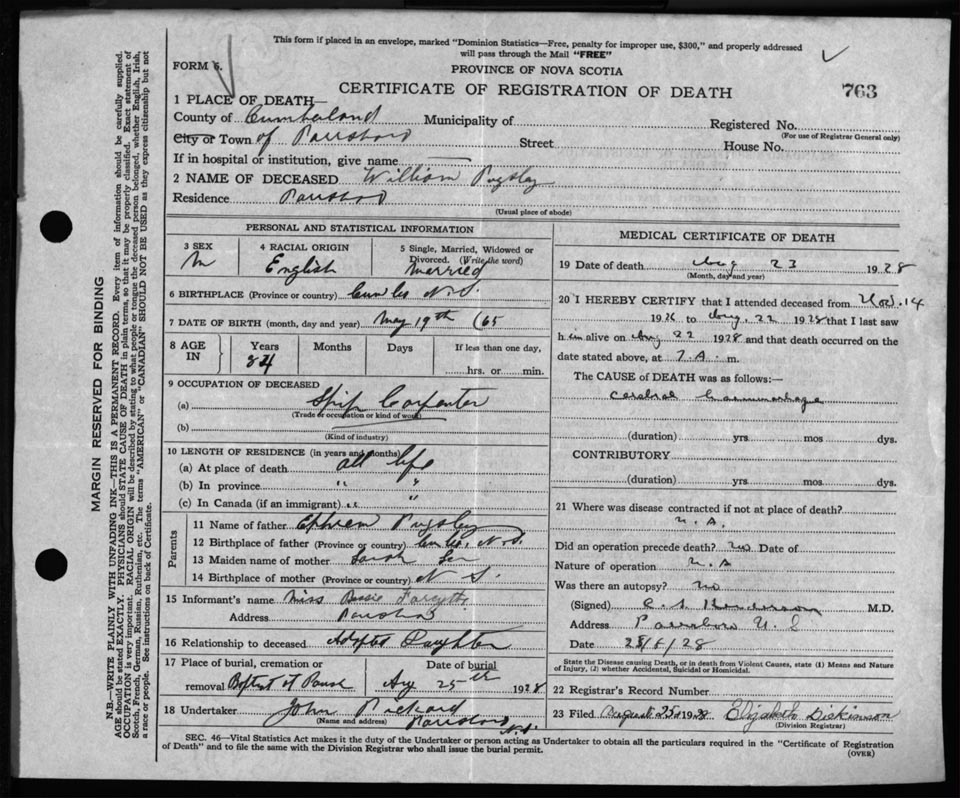 This form if placed in an envelope, marked "Dominion Statistics—Free, penalty for improper use, $300," and properly addressed
will pass through the Mail "FREE"
FORM 6.
PROVINCE OF NOVA SCOTIA
CERTIFICATE OF REGISTRATION OF DEATH
763
1 PLACE OF DEATH—
County of Cumberland Municipality of Registered No.
(For use of Registrar General only)
City or Town of Parrsboro Street House No.
If in hospital or institution, give name —
2 NAME OF DECEASED William Pugsley
Residence Parrsboro
(Usual place of abode)
PERSONAL AND STATISTICAL INFORMATION
3 SEX 4 RACIAL ORIGIN 5 Single, Married, Widowed or
Divorced. (Write the word)
M English Married
6 BIRTHPLACE (Province or country) N.S.
7 DATE OF BIRTH (month, day and year) May 19th
8 AGE IN Years Months Days If less than one day,
hrs. or min.
9 OCCUPATION OF DECEASED
(a) Ship Carpenter
(Trade or occupation or kind of work)
(b)
(Kind of industry)
10 LENGTH OF RESIDENCE (in years and months)
(a) At place of death all life
(b) In province " "
(c) In Canada (if an immigrant) " "
Parents
11 Name of father Ephrem Pugsley
12 Birthplace of father (Province or country) N.S.
13 Maiden name of mother Sarah
14 Birthplace of mother (Province or country) N S.
15 Informant's name Miss Bessie Forsyth
Address Parrsboro
16 Relationship to deceased Adopted Daughter
17 Place of burial, cremation or Date of burial
removal Baptist at Aug 25th 1928
18 Undertaker John Rickard
(Name and address) Parrsboro N.S.
MEDICAL CERTIFICATE OF DEATH
19 Date of death Aug 23 1928
(Month, day and year)
20 I HEREBY CERTIFY that I attended deceased from Nov. 14
1926 to Aug. 22 1928 that I last saw
him alive on Aug 22 1928 and that death occurred on the
date stated above, at 7.A. m.
The CAUSE of DEATH was as follows:—
Cerebral Haemmorhage
(duration) yrs mos dys.
CONTRIBUTORY
(duration) yrs. mos. dys.
21 Where was disease contracted if not at place of death?
N.A.
Did an operation precede death? No Date of
Nature of operation N.A
Was there an autopsy? No
(Signed) Henderson M.D.
Address Parrsboro N.S
Date /28
State the Disease causing Death, or in death from Violent Causes, state (1) Means and Nature
of Injury, (2) whether Accidental, Suicidal or Homicidal.
22 Registrar's Record Number
23 Filed August 25 1928 Elizabeth Dickinson
(Division Registrar)
SEC. 46—Vital Statistics Act makes it the duty of the Undertaker or person acting as Undertaker to obtain all the particulars required in the "Certificate of Registration
of Death" and to file the same with the Division Registrar who shall issue the burial permit.
(OVER)
MARGIN RESERVED FOR BINDING
N.B.—WRITE PLAINLY WITH UNFADING INK—THIS IS A PERMANENT RECORD. Every item of information should be carefully supplied.
AGE should be stated EXACTLY. PHYSICIANS should STATE CAUSE OF DEATH in plain terms, so that it may be properly classified. Exact statement of
OCCUPATION is very important. RACIAL ORIGIN will be described by stating to what people or tongue the deceased person belonged, whether English, Irish,
Scotch, French, German, Russian, Ruthenian, etc. The terms "AMERICAN" or "CANADIAN" SHOULD NOT BE USED as they express citizenship but not
a race or people. See instructions on back of Certificate.